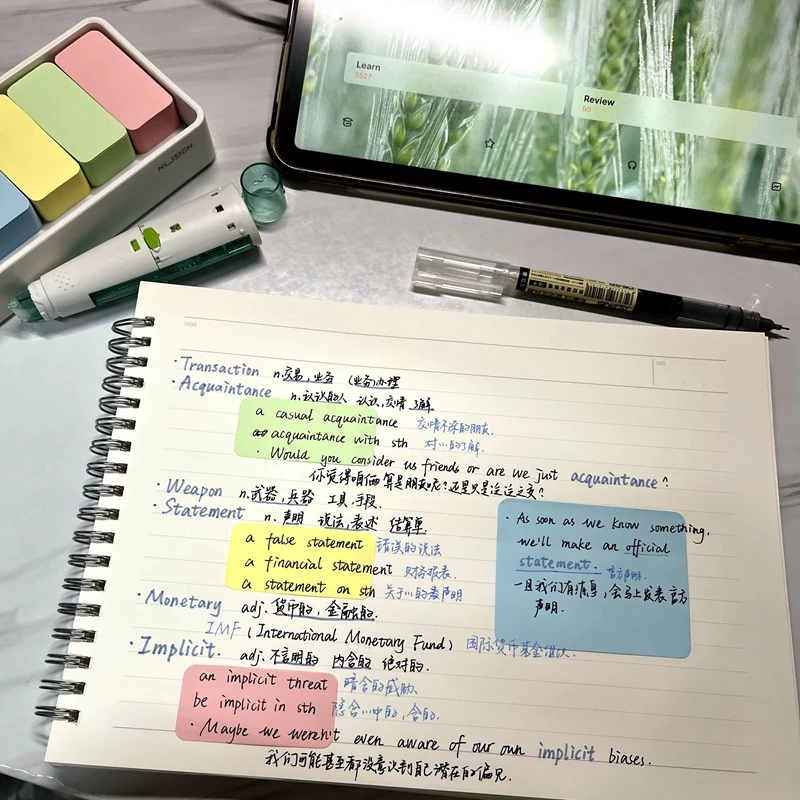 Learn
5527
Review
90
NUSIGN
DATE
· Transaction n.交易,业务 (业务)办理
· Acquaintance n.认识的人 认识,交情 了解
a casual acquaintance 交情不深的朋友.
acquaintance with sth 对…的了解.
· Would you consider us friends or are we just acquaintance?
你觉得咱俩算是朋友呢?还是只是泛泛之交?
· Weapon n.武器,兵器 工具,手段.
· Statement n. 声明 说法,表述 结算单
a false statement 错误的说法
a financial statement 财务报表.
a statement on sth 关于…的表声明
· As soon as we know something,
we'll make an official
statement. 官方声明.
一旦我们有消息,会马上发表官方
声明.
· Monetary adj.货币的,金融的.
IMF (International Monetary Fund) 国际货币基金组织.
· Implicit. adj.不言明的 内含的 绝对的.
an implicit threat 暗含的威胁.
be implicit in sth 隐含…中的,含的.
· Maybe we weren't even aware of our own implicit biases.
我们可能甚至都没意识到自己潜在的偏见.